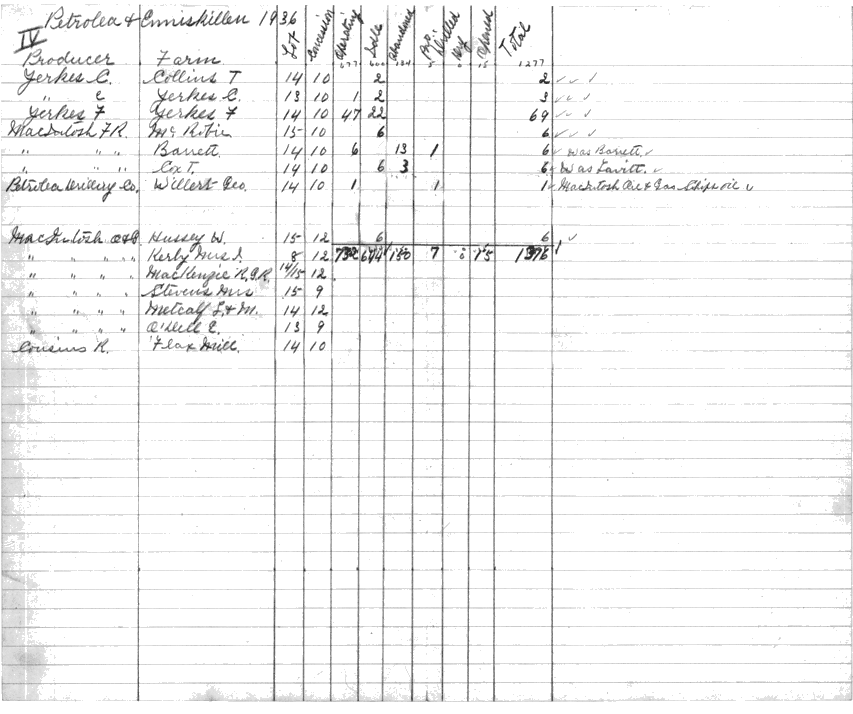 Petrolea & Enniskillen 1936
IV
Producer Farm Lot Concession Operating Idle Abandoned Drilled Dry Total
677 600 184 5 0 15 1277
Yerkes C. Collins T 14 10 2 2 ✓ ✓ ✓
" C Yerkes C. 13 10 1 2 3 ✓ ✓ ✓
Yerkes F Yerkes F 14 10 47 22 69 ✓ ✓ ✓
MacIntosh F.R. 15 10 6 6 ✓ ✓ ✓
" " " Barrett. 14 10 6 13 1 6 ✓ Was Barrett. ✓
" " " Cox T. 14 10 6 3 6 ✓ Was Lavitt. ✓
Petrolea Drillery Co. Willert Geo. 14 10 1 1 1 ✓ MacIntosh Oil & Gas Ships oil ✓
MacIntosh O&G Hussey W. 15 12 6 6 ✓
" " " " Kerby Mrs I. 8 12 7 0 15
" " " " MacKenzie R.G.R. 14/15 12
" " " " Stevens Mrs 15 9
" " " " Metcalf L. & M. 14 12
" " " " O'Dell E. 13 9
Cousins R. Flax Mill. 14 10